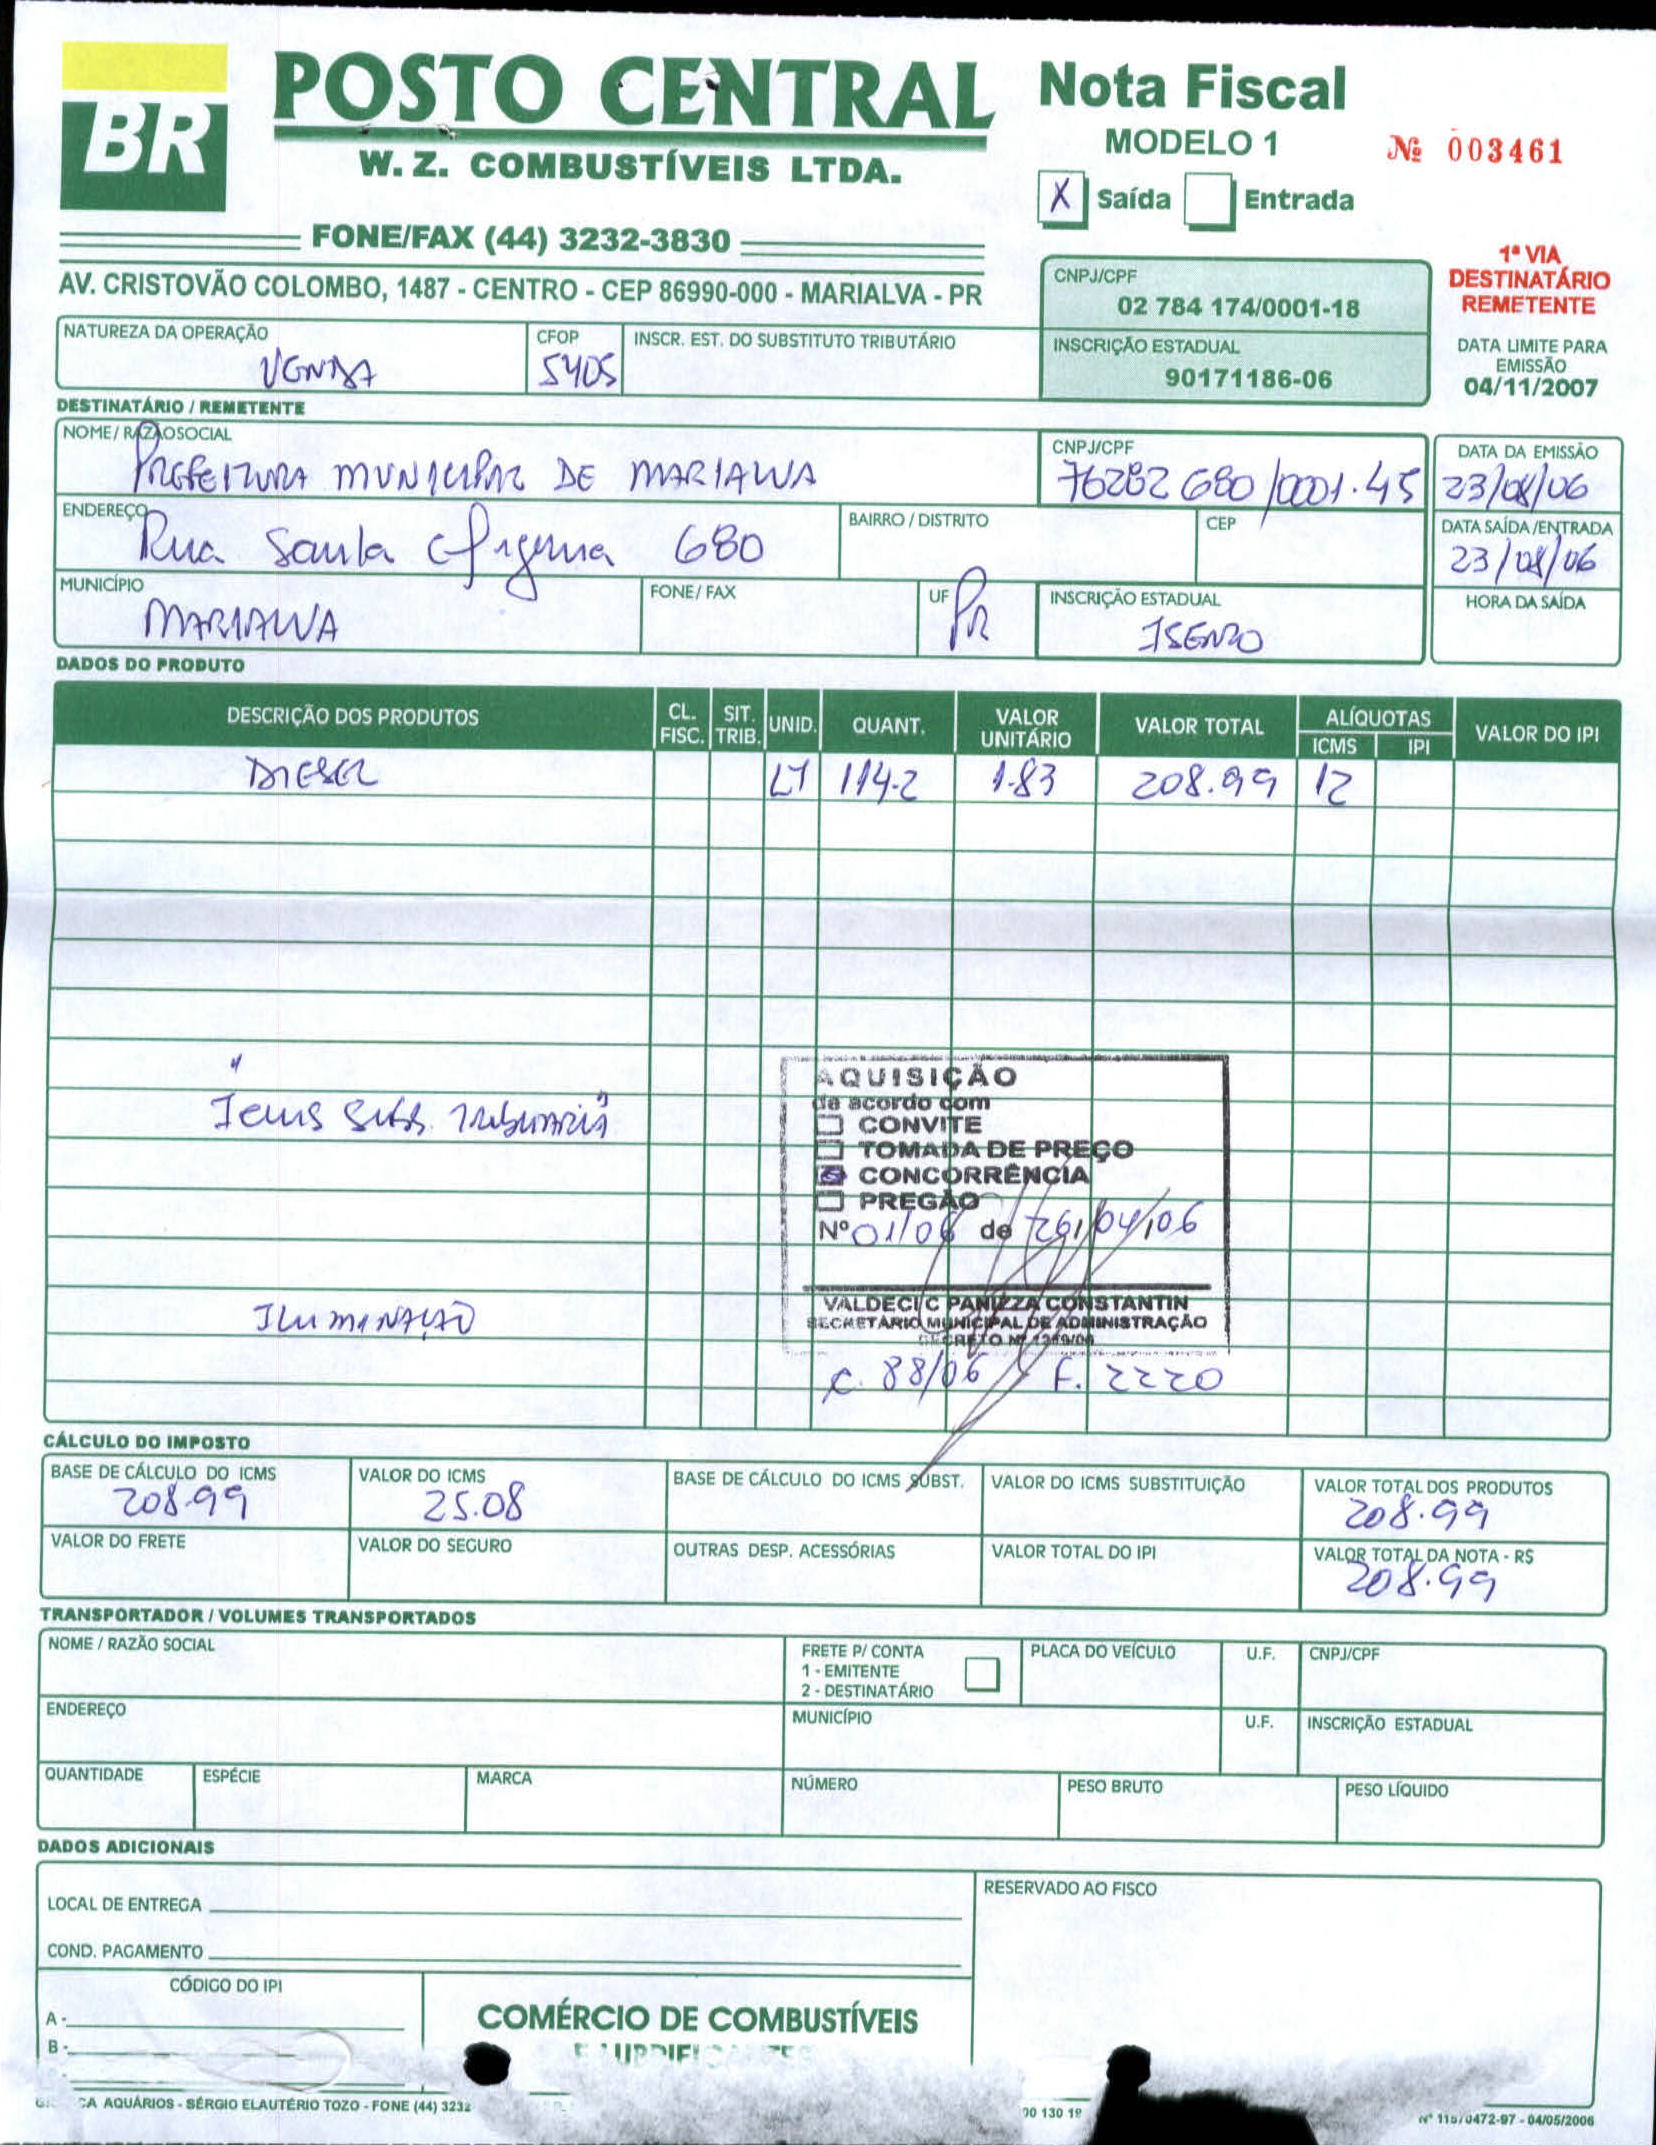 BR
POSTO CENTRAL
W. Z. COMBUSTÍVEIS LTDA.
FONE/FAX (44) 3232-3830
AV. CRISTOVÃO COLOMBO, 1487 - CENTRO - CEP 86990-000 - MARIALVA - PR
Nota Fiscal
MODELO 1
Nº 003461
X Saída Entrada
1ª VIA
DESTINATÁRIO
REMETENTE
CNPJ/CPF
02 784 174/0001-18
INSCRIÇÃO ESTADUAL
90171186-06
DATA LIMITE PARA
EMISSÃO
04/11/2007
NATUREZA DA OPERAÇÃO CFOP INSCR. EST. DO SUBSTITUTO TRIBUTÁRIO
VENDA 5405
DESTINATÁRIO / REMETENTE
NOME / RAZÃO SOCIAL CNPJ/CPF DATA DA EMISSÃO
PREFEITURA MUNICIPAL DE MARIALVA 76282 680/0001.45 23/08/06
ENDEREÇO BAIRRO / DISTRITO CEP DATA SAÍDA /ENTRADA
Rua Santa 680 23/08/06
MUNICÍPIO FONE/ FAX UF INSCRIÇÃO ESTADUAL HORA DA SAÍDA
MARIALVA PR ISENTO
DADOS DO PRODUTO
DESCRIÇÃO DOS PRODUTOS CL. FISC. SIT. TRIB. UNID. QUANT. VALOR UNITÁRIO VALOR TOTAL ALÍQUOTAS ICMS IPI VALOR DO IPI
DIESEL LT 114.2 1.83 208.99 12
"Icms Subs. Tributaria"
ILUMINAÇÃO
AQUISIÇÃO
de acordo com
CONVITE
TOMADA DE PREÇO
CONCORRÊNCIA
PREGÃO
Nº 01/06 de 26/04/06
VALDECI C PANIZZA CONSTANTIN
SECRETÁRIO MUNICIPAL DE ADMINISTRAÇÃO
DECRETO Nº
C. 88/06 F. 2220
CÁLCULO DO IMPOSTO
BASE DE CÁLCULO DO ICMS VALOR DO ICMS BASE DE CÁLCULO DO ICMS SUBST. VALOR DO ICMS SUBSTITUIÇÃO VALOR TOTAL DOS PRODUTOS
208.99 25.08 208.99
VALOR DO FRETE VALOR DO SEGURO OUTRAS DESP. ACESSÓRIAS VALOR TOTAL DO IPI VALOR TOTAL DA NOTA - R$
208.99
TRANSPORTADOR / VOLUMES TRANSPORTADOS
NOME / RAZÃO SOCIAL FRETE P/ CONTA PLACA DO VEÍCULO U.F. CNPJ/CPF
1 - EMITENTE
2 - DESTINATÁRIO
ENDEREÇO MUNICÍPIO U.F. INSCRIÇÃO ESTADUAL
QUANTIDADE ESPÉCIE MARCA NÚMERO PESO BRUTO PESO LÍQUIDO
DADOS ADICIONAIS
LOCAL DE ENTREGA RESERVADO AO FISCO
COND. PAGAMENTO
CÓDIGO DO IPI
A -
B -
COMÉRCIO DE COMBUSTÍVEIS
AQUÁRIOS - SÉRGIO ELAUTÉRIO TOZO - FONE (44) 3232
04/05/2006